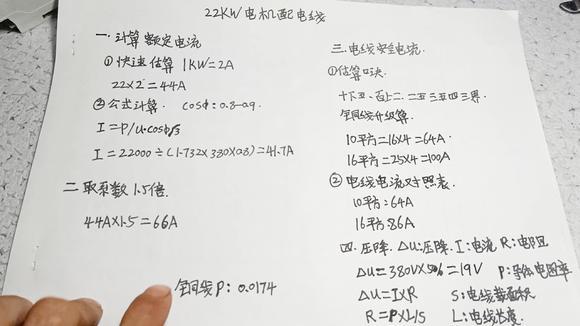 22KW电机配电线
一.计算额定电流
①快速估算 1KW=2A
22×2=44A
②公式计算. cosφ:0.8-0.9.
I=P/U·cosφ√3
I=22000÷(1.732×380×0.8)=41.7A
二.取系数1.5倍.
44A×1.5=66A
铝铜线P:0.0174
三.电线安全电流.
①估算口诀.
十下五.百上二.二五三五四三界.
铜线升级算.
10平方=16×4=64A.
16平方=25×4=100A
②电线电流对照表.
10平方:64A
16平方:86A
四.压降. ΔU:压降. I:电流 R:电阻
ΔU=380V×5%=19V P:导体电阻率
ΔU=I×R S:电线截面积
R=P×L/S L:电线长度.